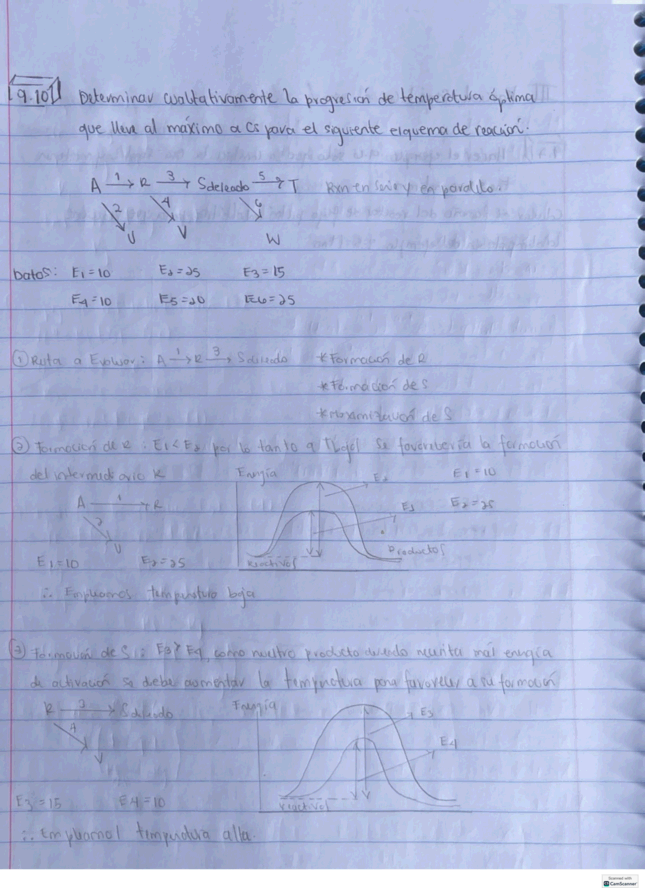 9.10 Determinar cualitativamente la progresión de temperatura óptima
que lleva al máximo a Cs para el siguiente esquema de reacción.
A 1→ R 3→ Sdeseado 5→ T Rxn en serie y en paralelo.
2 4 6
U V W
Datos: E1=10 E2=25 E3=15
E4=10 E5=20 E6=25
① Ruta a Evaluar: A 1→ R 3→ Sdeseado *Formación de R
*Formación de S
*Maximización de S
② Formación de R: E1<E2, por lo tanto a T(baja) se favorecería la formación
del intermediario R Energía E2 E1=10
A 1→ R E1 E2=25
2
U Reactivos Productos
E1=10 E2=25
∴ Empleamos temperatura baja
③ Formación de S: E3>E4, como nuestro producto deseado necesita más energía
de activación se debe aumentar la temperatura para favorecer a su formación
R 3→ Sdeseado Energía E3
4 E4
V
Reactivos
E3=15 E4=10
∴ Empleamos temperatura alta.
Scanned with
CamScanner